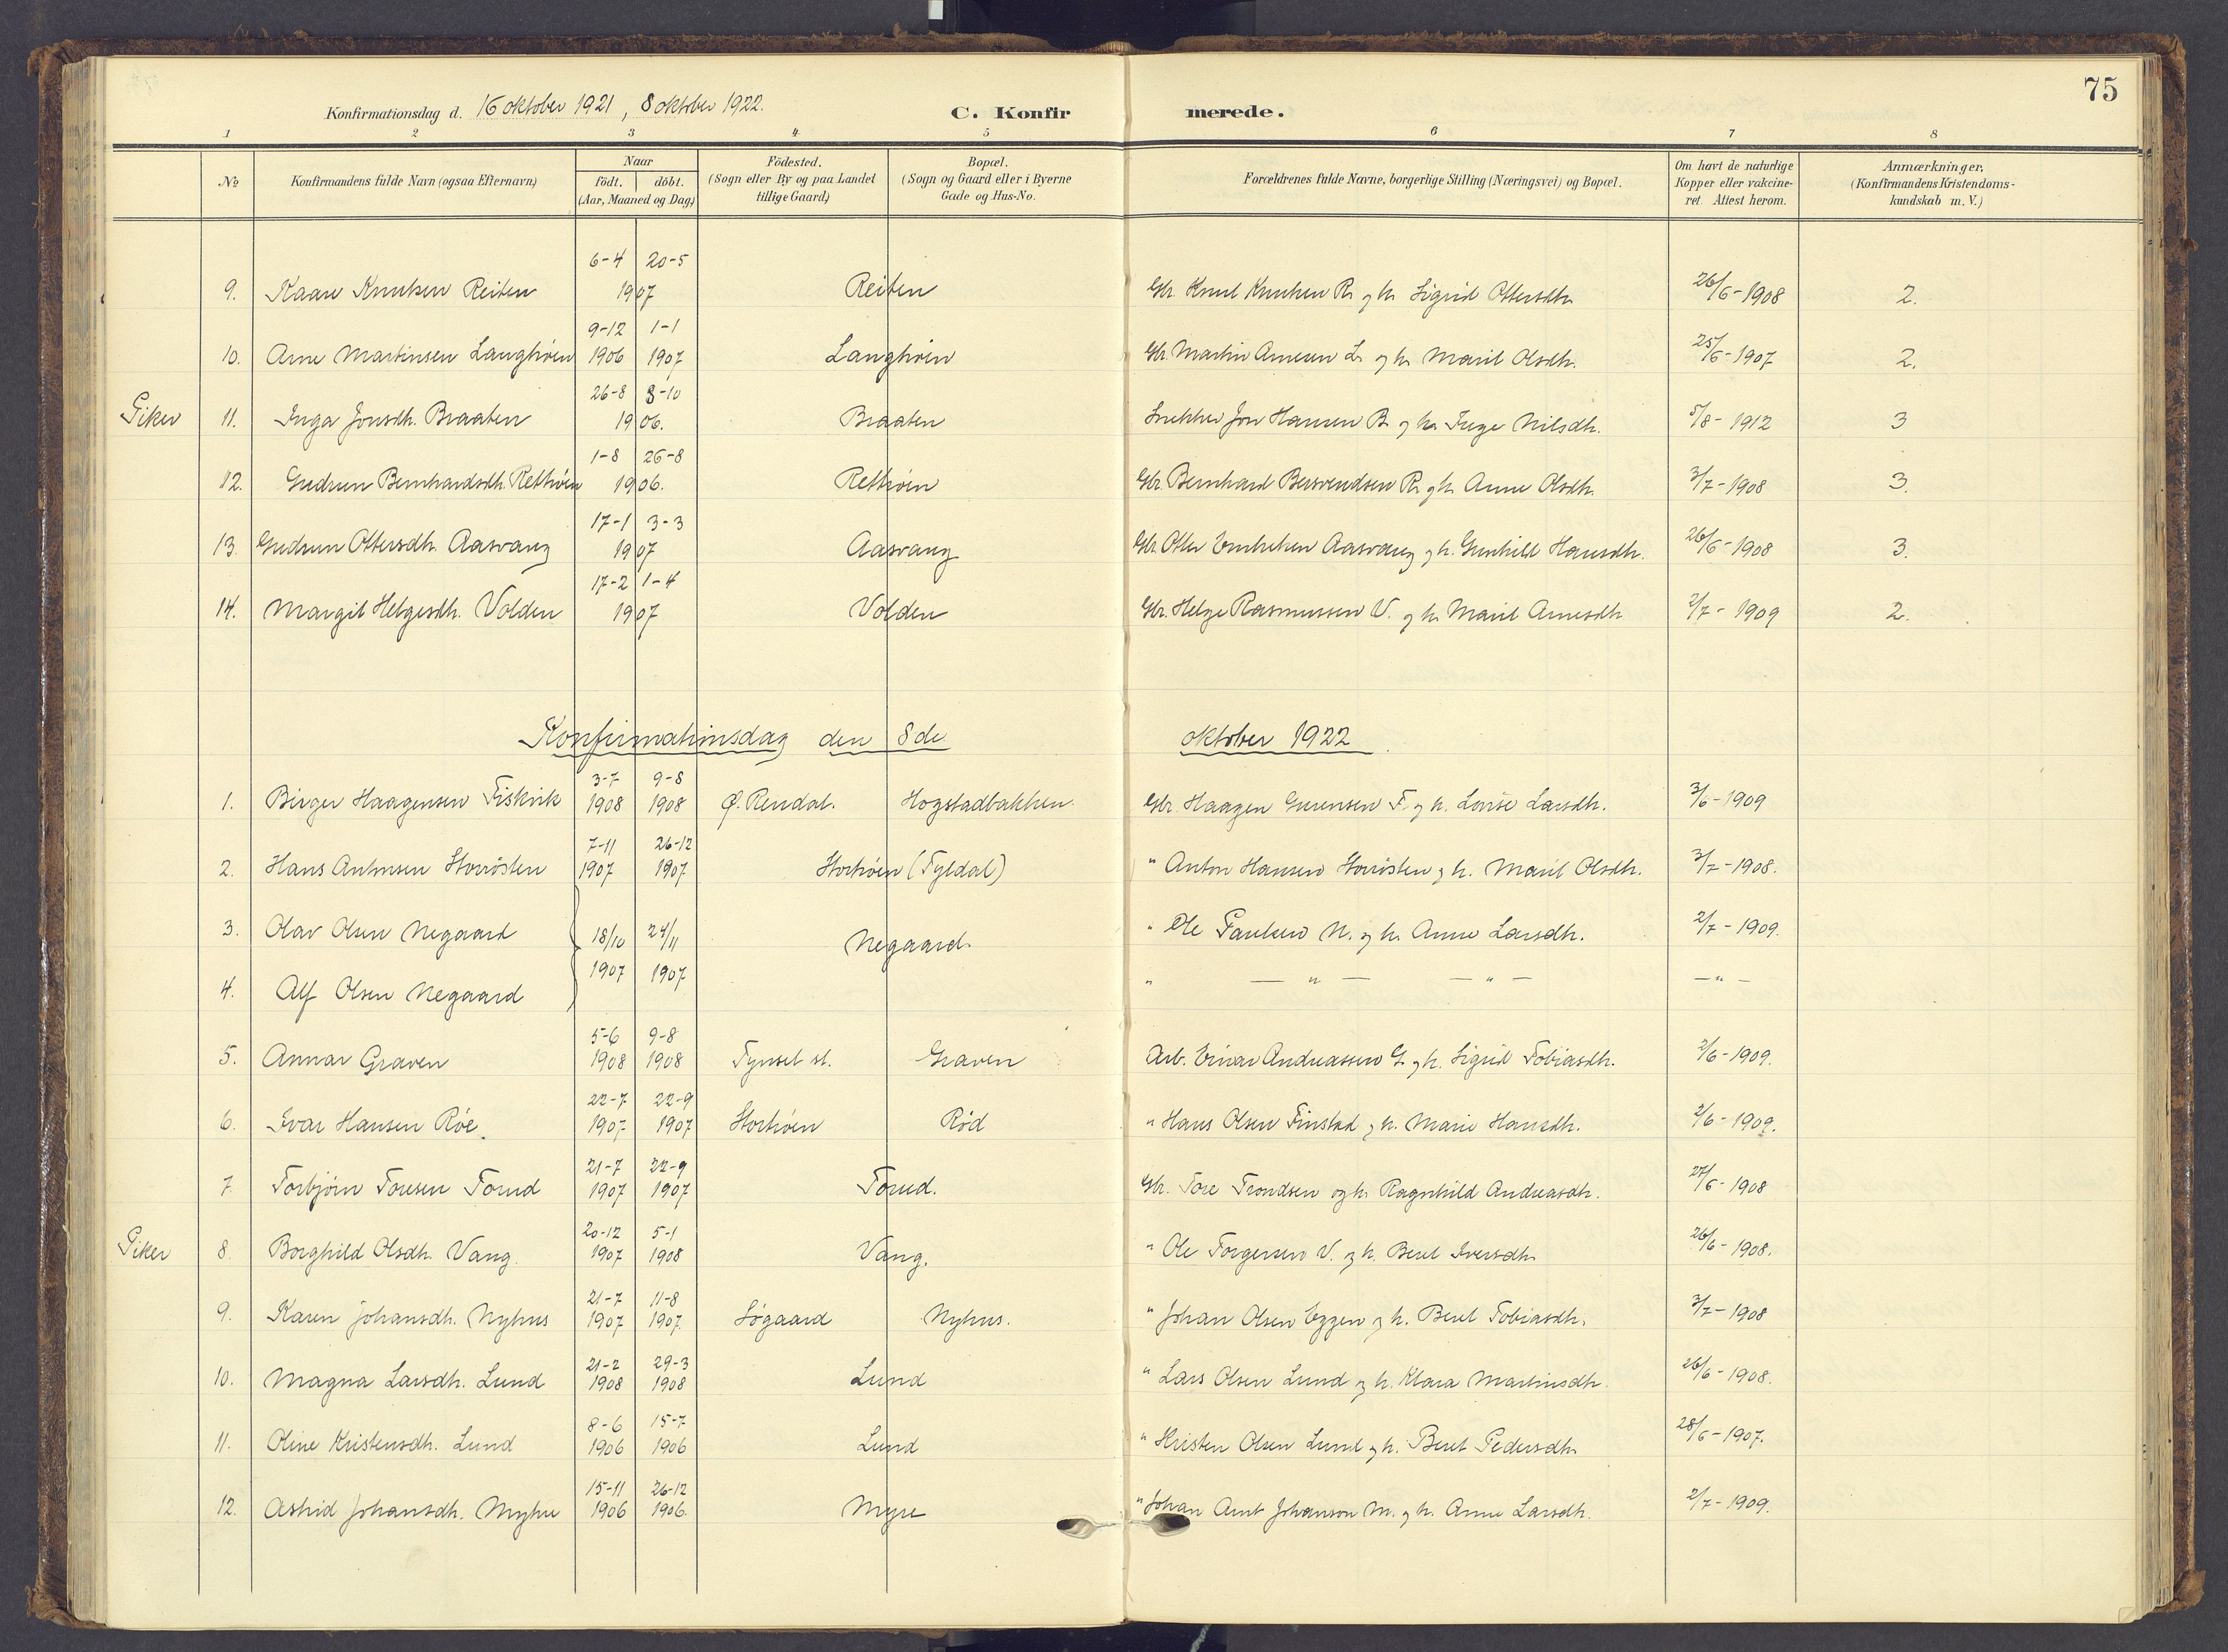 75
Konfirmationsdag d. 16 oktober 1921, 8 oktober 1922. C. Konfirmerede.
1 2 3 4 5 6 7 8
No
Konfirmandens fulde Navn (ogsaa Efternavn)
Naar
födt. döbt.
(Aar, Maaned og Dag)
Födested.
(Sogn eller By og paa Landet
tillige Gaard)
Bopæl.
(Sogn og Gaard eller i Byerne
Gade og Hus-No.
Forældrenes fulde Navne, borgerlige Stilling (Næringsvei) og Bopæl.
Om havt de naturlige
Kopper eller vakcine-
ret. Attest herom.
Anmærkninger,
(Konfirmandens Kristendoms-
kundskab m. V.)
6-4 20-5
9. Kaare Knutsen Reiten 1907 Reiten Gbr. Knut Knutsen R. og h. Sigrid Ottersdh. 26/6-1908 2.
9-12 1-1
10. Arne Martinsen Langhøien 1906 1907 Langhøien Gbr. Martin Arnesen L. og h. Marit Olsdh. 25/6-1907 2.
26-8 8-10
Piker 11. Inga Jonsdh. Braaten 1906. Braaten Snekker Jon Hansen B. og h. Inge Nilsdh. 5/8-1912 3
1-8 26-8
12. Gudrun Bernhardsdh. Rethøien 1906. Rethøien Gbr. Bernhard Bersvendsen R. og h. Anne Olsdh. 3/7-1908 3.
17-1 3-3
13. Gudrun Ottersdh. Aasvang 1907 Aasvang Gbr. Otter Aasvang og h. Gunhild Hansdh. 26/6-1908 3.
17-2 1-4
14. Margit Helgesdh. Volden 1907 Volden Gbr. Helge Rasmussen V. og h. Marit Arnesdh. 2/7-1909 2.
Konfirmationsdag den 8de oktober 1922.
3-7 9-8
1. Birger Haagensen Fiskvik 1908 1908 Ø. Rendal. Hogstadbakken. Gbr. Haagen F. og h. Lovise Larsdh. 3/6-1909
7-11 26-12
2. Hans Antonsen Storrøsten 1907 1907 Stortrøen (Tyldal) " Anton Hansen Storrøsten og h. Marit Olsdh. 3/7-1908.
3. Olav Olsen Negaard 18/10 24/11 Negaard. " Ole Paulsen N. og h. Anne Larsdh. 2/7-1909.
1907 1907
4. Alf Olsen Negaard " — " — — " — — " —
5-6 9-8
5. Annar Graven 1908 1908 Tynset st. Graven Arb. Einar Andreassen G. og h. Sigrid Tobiasdh. 2/6-1909.
22-7 22-9
6. Ivar Hansen Røe. 1907 1907 Stortrøen Rød " Hans Olsen Finstad og h. Marie Hansdh. 2/6-1909.
21-7 22-9
7. Torbjørn Toresen Torud 1907 1907 Torud. Gbr. Tore Trondsen og h. Ragnhild Andreasdh. 27/6-1908
20-12 5-1
Piker 8. Borghild Olsdh. Vang. 1907 1908 Vang. " Ole Torgersen V. og h. Beret Iversdh. 26/6-1908.
21-7 11-8
9. Karen Johansdh. Nyhus 1907 1907. Søgaard Nyhus. " Johan Olsen Eggen og h. Beret Tobiasdh. 3/7-1908
21-2 29-3
10. Magna Larsdh. Lund 1908 1908 Lund " Lars Olsen Lund og h. Klara Martinsdh. 26/6-1908.
8-6 15-7
11. Oline Kristensdh. Lund 1906 1906 Lund " Kristen Olsen Lund og h. Beret Pedersdh. 28/6-1907.
15-11 26-12
12. Astrid Johansdh. Myhre 1906 1906. Myre " Johan Arnt Johanson M. og h. Anne Larsdh. 2/7-1909.